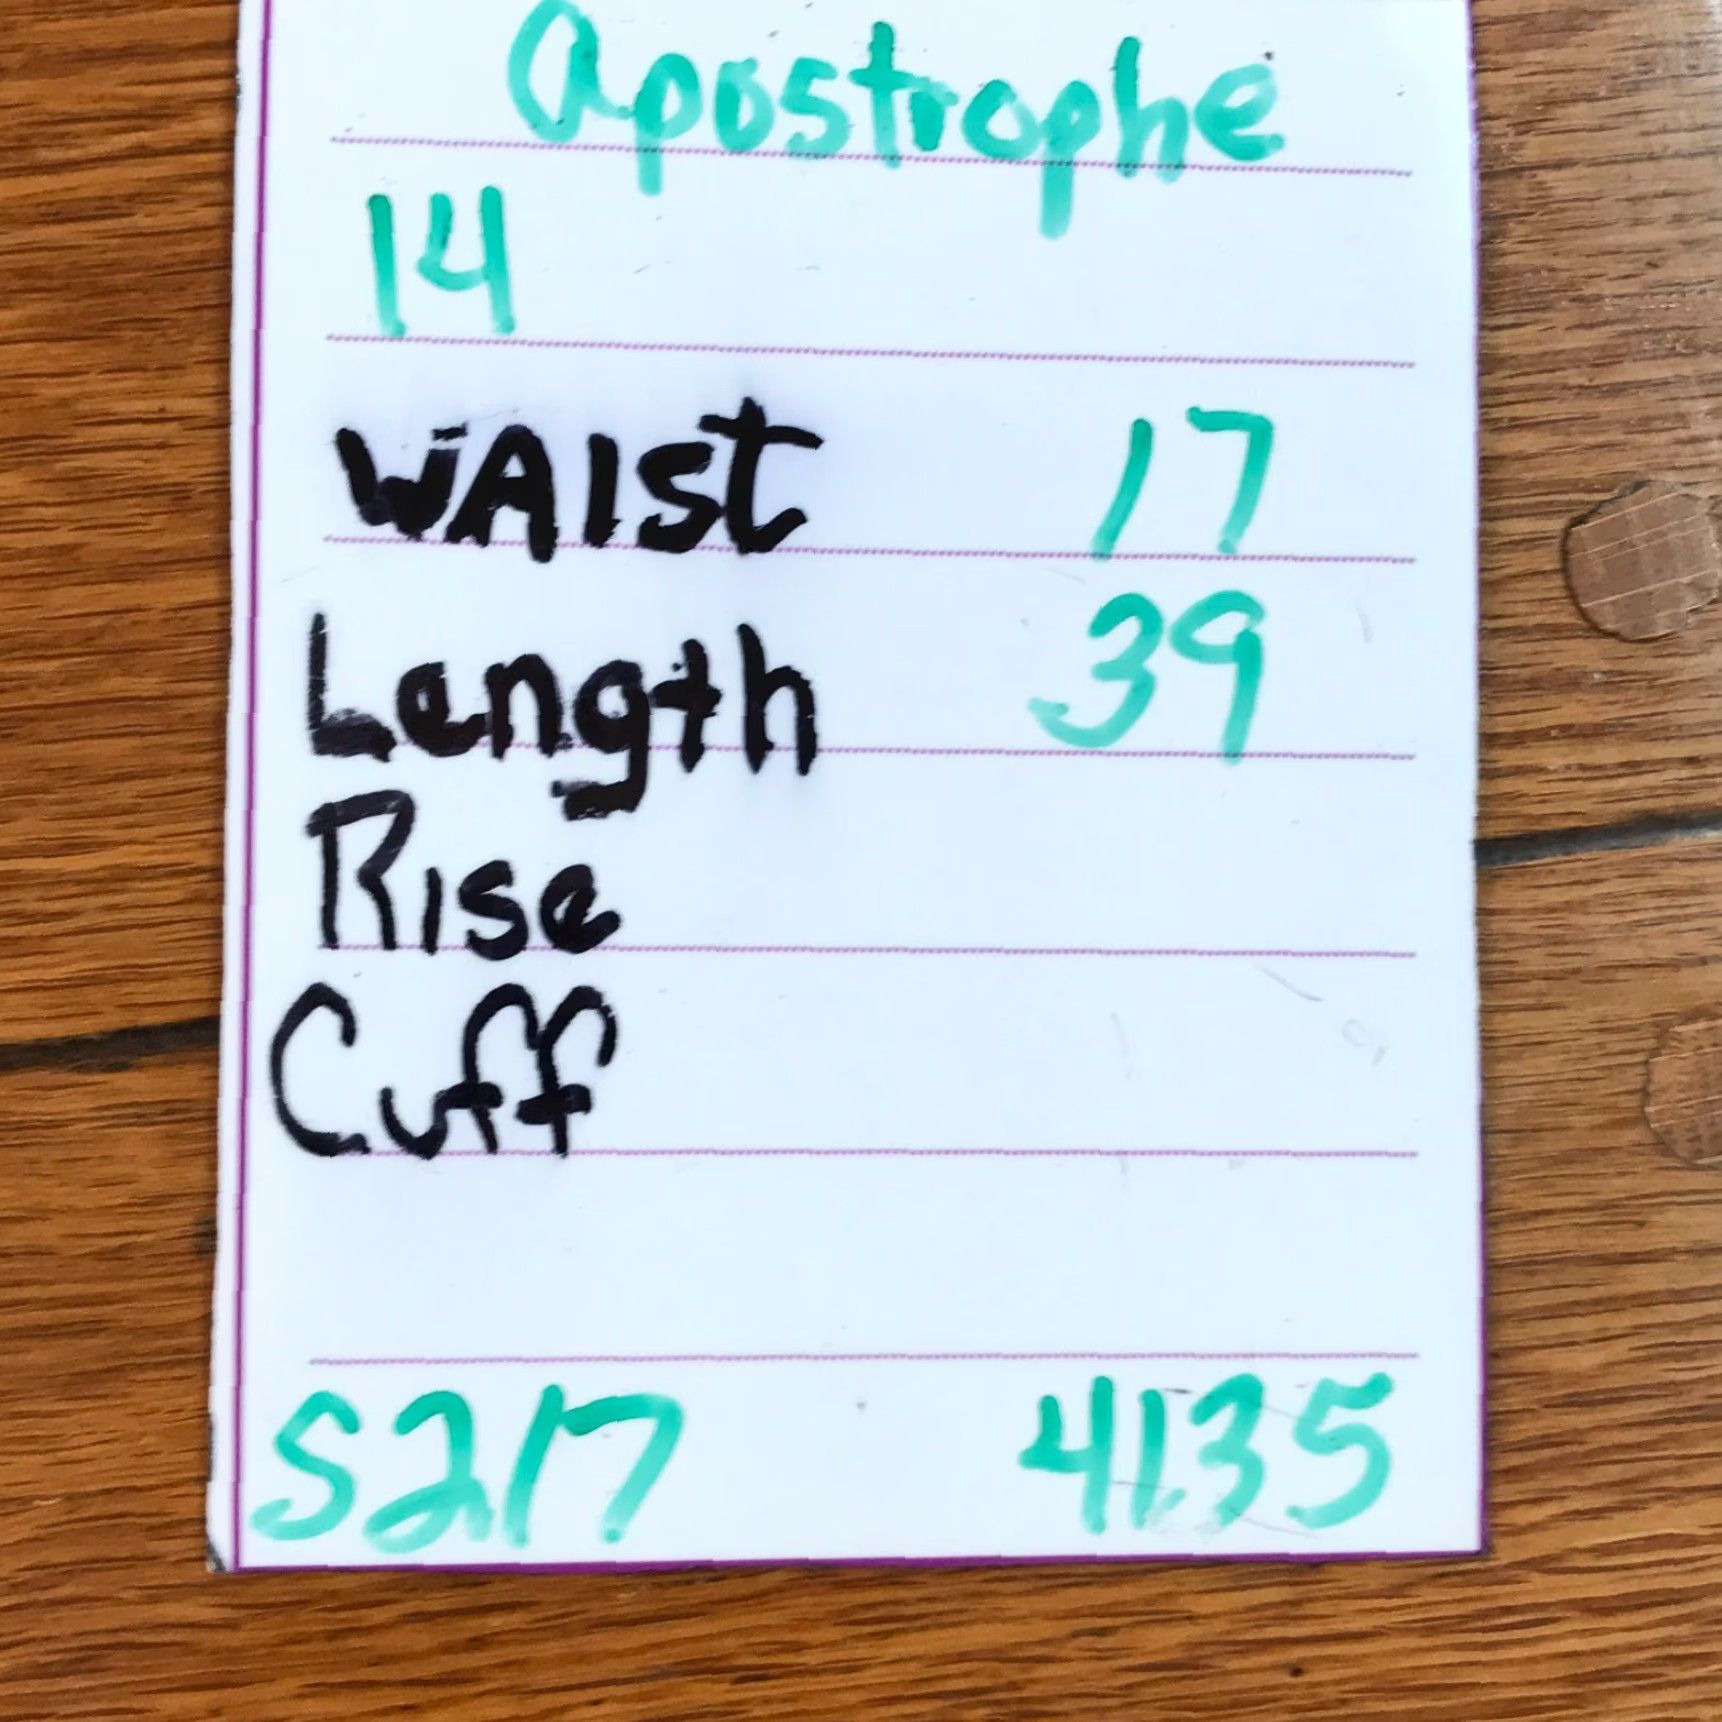 apostrophe
14
WAIst 17
Length 39
Rise
Cuff
S217 4135